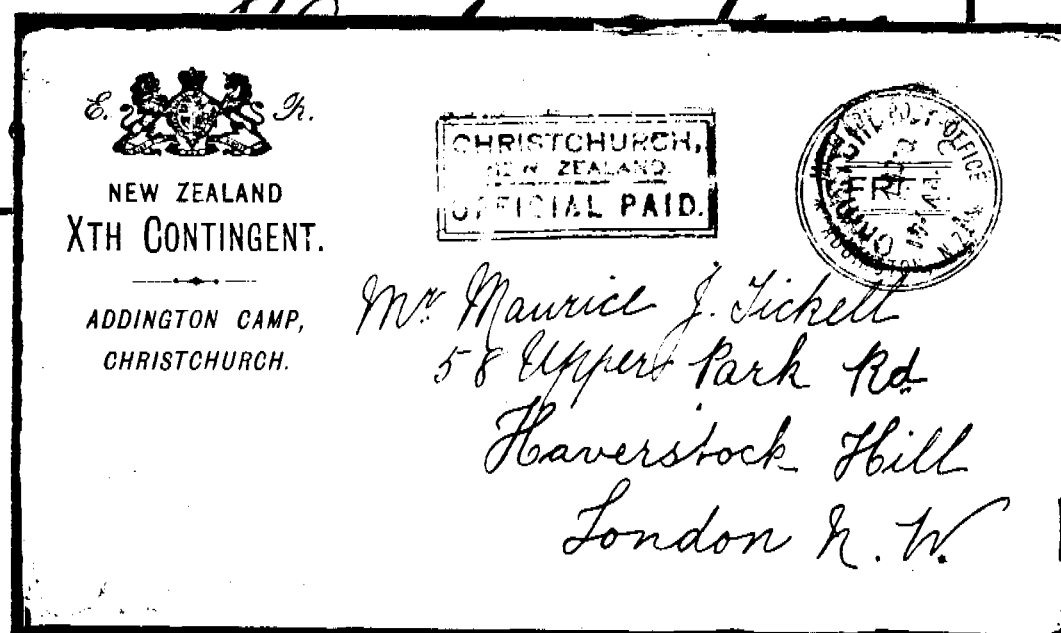 E. R.
NEW ZEALAND
XTH CONTINGENT.
ADDINGTON CAMP,
CHRISTCHURCH.
CHRISTCHURCH,
NEW ZEALAND.
OFFICIAL PAID.
POST OFFICE
FREE
N.Z.
Mr. Maurice J. Tickell
58 Upper Park Rd
Haverstock Hill
London N. W.